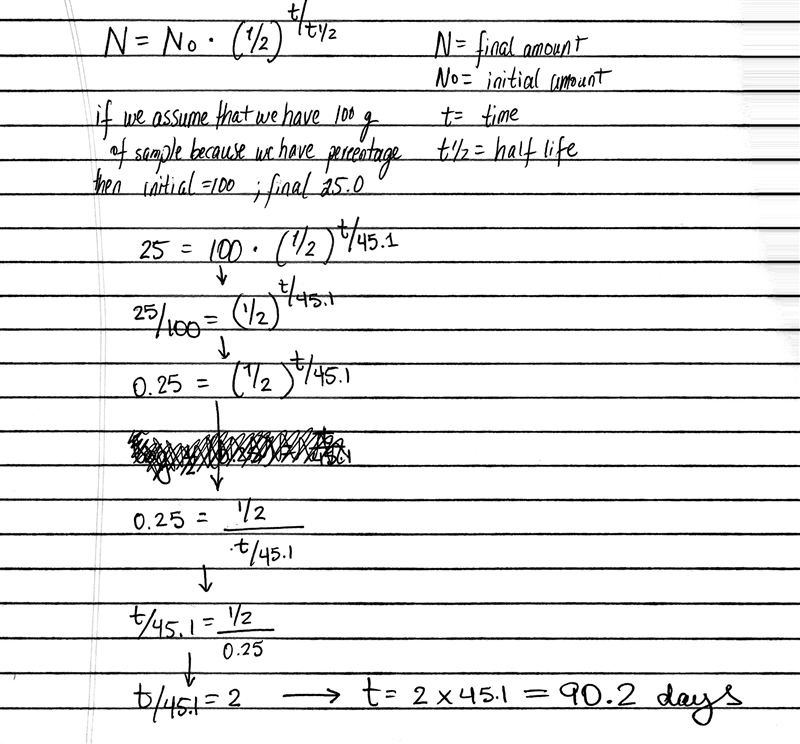 N = No · (1/2)^t/t1/2
N = final amount
No = initial amount
t = time
t1/2 = half life
if we assume that we have 100 g
of sample because we have percentage
then initial =100 ; final 25.0
25 = 100 · (1/2)^t/45.1
↓
25/100 = (1/2)^t/45.1
↓
0.25 = (1/2)^t/45.1
↓
0.25 = 1/2 / t/45.1
↓
t/45.1 = 1/2 / 0.25
↓
t/45.1 = 2 → t = 2 x 45.1 = 90.2 days